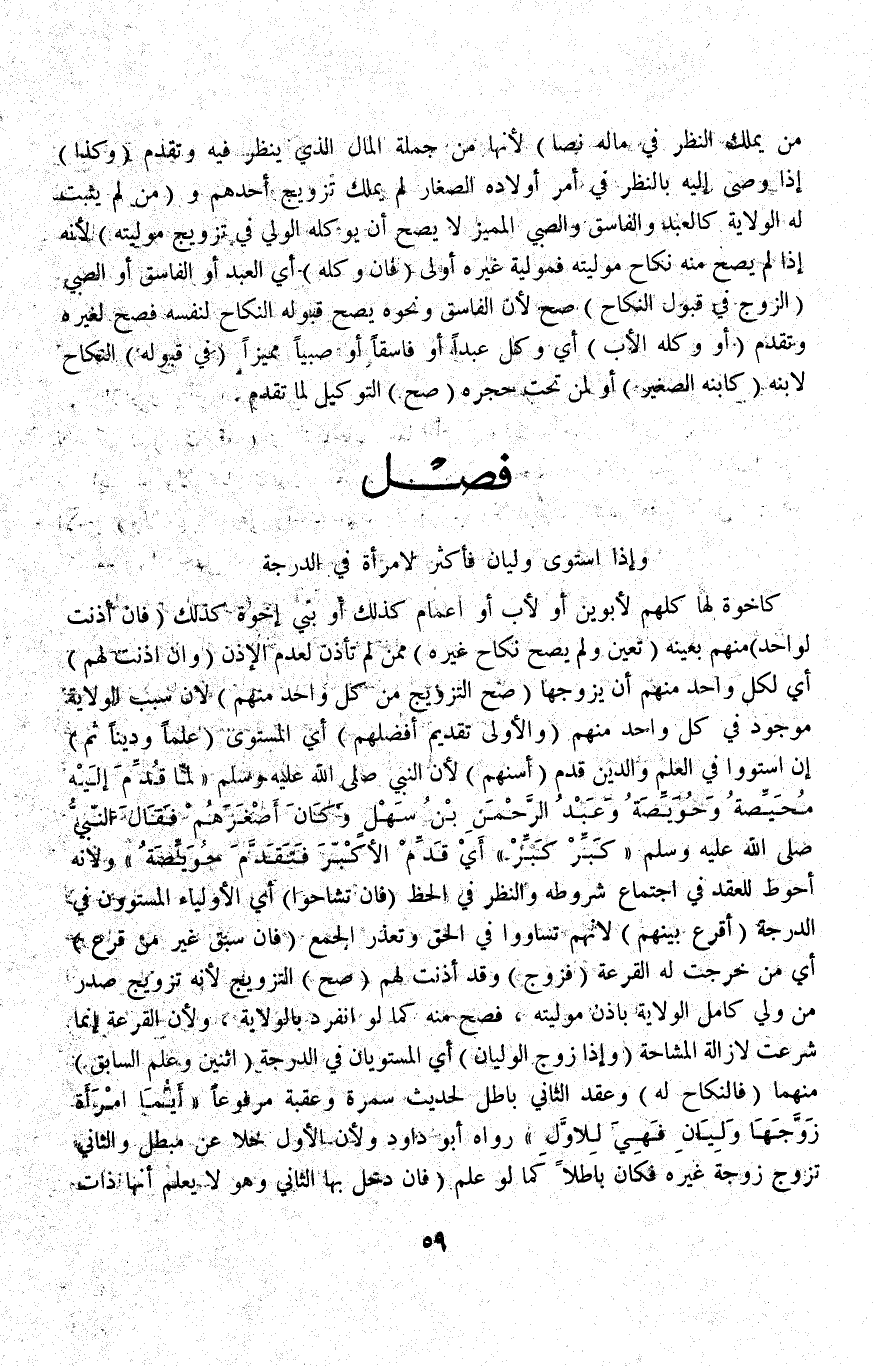 من يملك النظر في ماله نصا ) لأنها من جملة المال الذي ينظر فيه وتقدم ( وكذا )
إذا وصى إليه بالنظر في أمر أولاده الصغار لم يملك تزويج أحدهم و ( من لم يثبت
له الولاية كالعبد والفاسق والصبي المميز لا يصح أن يوكله الولي في تزويج موليته ) لأنه
إذا لم يصح منه نكاح موليته فمولية غيره أولى ( فان وكله ) أي العبد أو الفاسق أو الصبي
( الزوج في قبول النكاح ) صح لأن الفاسق ونحوه يصح قبوله النكاح لنفسه فصح لغيره
وتقدم ( أو وكله الأب ) أي وكل عبداً أو فاسقاً أو صبياً مميزاً ( في قبوله ) النكاح
لابنه ( كابنه الصغير ) أو لمن تحت حجره ( صح ) التوكيل لما تقدم .
فصل
وإذا استوى وليان فأكثر لامرأة في الدرجة
كاخوة لها كلهم لأبوين أو لأب أو اعمام كذلك أو بني إخوة كذلك ( فان أذنت
لواحد)منهم بعينه ( تعين ولم يصح نكاح غيره ) ممن لم تأذن لعدم الإذن ( وان اذنت لهم )
أي لكل واحد منهم أن يزوجها ( صح التزويج من كل واحد منهم ) لأن سبب الولاية
موجود في كل واحد منهم ( والأولى تقديم أفضلهم ) أي المستوى ( علماً وديناً ثم )
إن استووا في العلم والدين قدم ( أسنهم ) لأن النبي صلى الله عليه وسلم « لَمَّا قُدِّمَ إلَيْهِ
مُحَيِّصَةُ وَحُوَيِّصَةُ وَعَبْدُ الرَّحْمَنِ بْنُ سَهْلٍ وَكَانَ أَصْغَرَهُمْ فَقَالَ النَّبِيُّ
صلى الله عليه وسلم « كَبِّرْ كَبِّرْ » أَيْ قَدِّمْ الأَكْبَرَ فَتَقَدَّمَ حُوَيِّصَةُ » ولأنه
أحوط للعقد في اجتماع شروطه والنظر في الحظ (فان تشاحوا) أي الأولياء المستوون في
الدرجة ( أقرع بينهم ) لأنهم تساووا في الحق وتعذر الجمع ( فان سبق غير من قرع )
أي من خرجت له القرعة ( فزوج ) وقد أذنت لهم ( صح ) التزويج لأنه تزويج صدر
من ولي كامل الولاية باذن موليته ، فصح منه كما لو انفرد بالولاية ، ولأن القرعة إنما
شرعت لازالة المشاحة ( وإذا زوج الوليان ) أي المستويان في الدرجة ( اثنين وعلم السابق )
منهما ( فالنكاح له ) وعقد الثاني باطل لحديث سمرة وعقبة مرفوعاً « أَيُّمَا امْرَأَة
زَوَّجَهَا وَلِيَانِ فَهِيَ لِلاوَّلِ » رواه أبو داود ولأن الأول خلا عن مبطل والثاني
تزوج زوجة غيره فكان باطلاً كما لو علم ( فان دخل بها الثاني وهو لا يعلم أنها ذات
٥٩